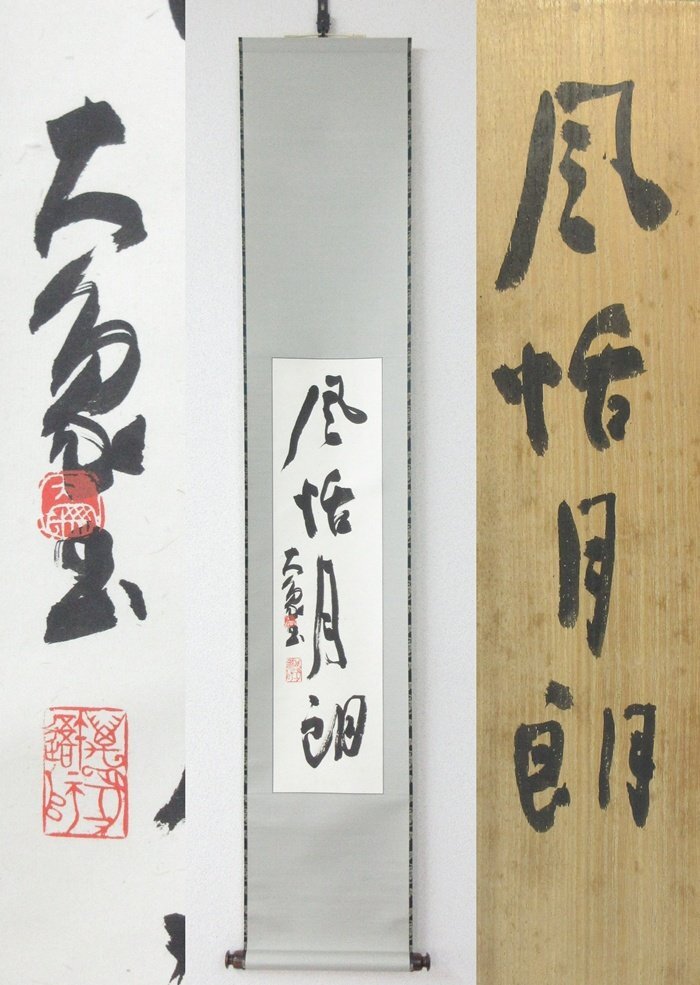 大象書
風恬月朗
大象書
風恬月朗